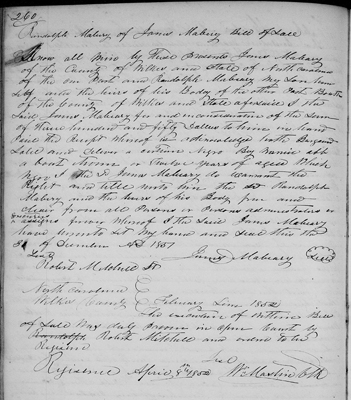 260
Randolph Mabery of James Mabery Bill of Sale
Know all men by these Presents James Mabery
of the County of Wilkes and State of North Carolina
of the one Part and Randolph Mabeary my
and the heirs of his Body of the other Part Both
of the County of Wilkes and State aforesaid I the
Said James Mabary for and in consideration of the Sum
of three hundred and fifty Dollars to him in hand
Paid the Receipt Whereof is acknowledge hath Bargand
Sold and a certain Negro Boy named
a bout eleven or Twelve years of age Black
I the James Mabeary do warrant the
Right and title unto him the Sd Randolph
Mabary and the heirs of his Body free and
clear from all Persons or Persons administrators
assigns Whereof I the Said James Mabary
have hereunto set my hand and Seal this the
of December AD 1851
James Mabeary Seal
Robert
North Carolina
Wilkes County February Term 1852
The execution of Within Bill
of Sale was duly Proven in open Court by
Robert Mitchell and ordered to be
Registered
Registered April 9th 1852 Wm Mastin Clk